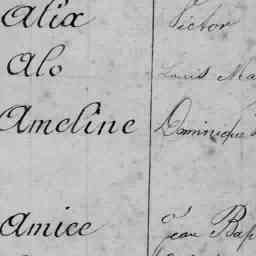 Alix Victor
Alo Louis Ma
Ameline Dominique
Amice Jean Bap